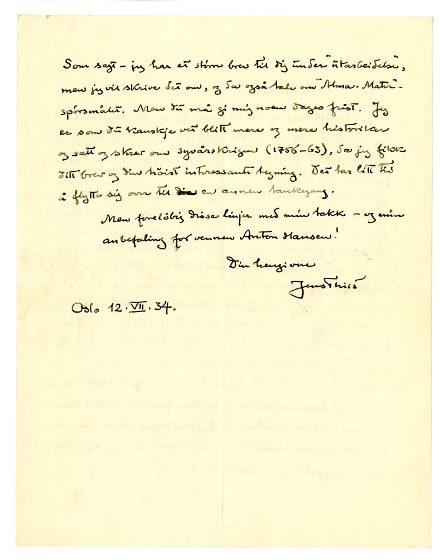 Som sagt – jeg har et större brev til dig under utarbeidelse,
men jeg vil skrive det om, og da også tale om Alma-Mater-
spörsmålet. Men du må gi mig noen dages frist. Jeg
er som du kanskje vet blitt mere og mere historiker
og satt og skrev om syvårskrigen (1756–63), da jeg fikk
ditt brev og din höist interessante tegning. Det tar litt tid
å flytte sig over til en annen tankegang.
Men forelöbig disse linjer med min takk – og min
anbefaling for vennen Anton Hansen!
Din hengivne
Jens Thiis
Oslo 12.VII.34.